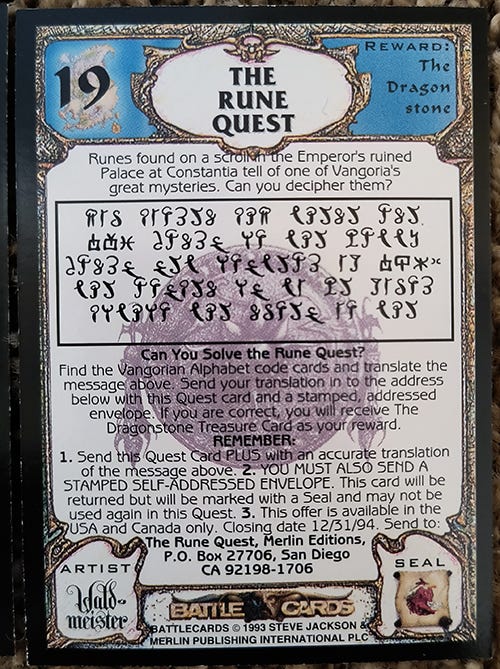 19
THE
RUNE
QUEST
REWARD:
The
Dragon
stone
Runes found on a scroll in the Emperor's ruined
Palace at Constantia tell of one of Vangoria's
great mysteries. Can you decipher them?
Can You Solve the Rune Quest?
Find the Vangorian Alphabet code cards and translate the
message above. Send your translation in to the address
below with this Quest card and a stamped, addressed
envelope. If you are correct, you will receive The
Dragonstone Treasure Card as your reward.
REMEMBER:
1. Send this Quest Card PLUS with an accurate translation
of the message above. 2. YOU MUST ALSO SEND A
STAMPED SELF-ADDRESSED ENVELOPE. This card will be
returned but will be marked with a Seal and may not be
used again in this Quest. 3. This offer is available in the
USA and Canada only. Closing date 12/31/94. Send to:
The Rune Quest, Merlin Editions,
P.O. Box 27706, San Diego
CA 92198-1706
ARTIST
Wald-
meister
BATTLE CARDS
BATTLECARDS © 1993 STEVE JACKSON &
MERLIN PUBLISHING INTERNATIONAL PLC
SEAL